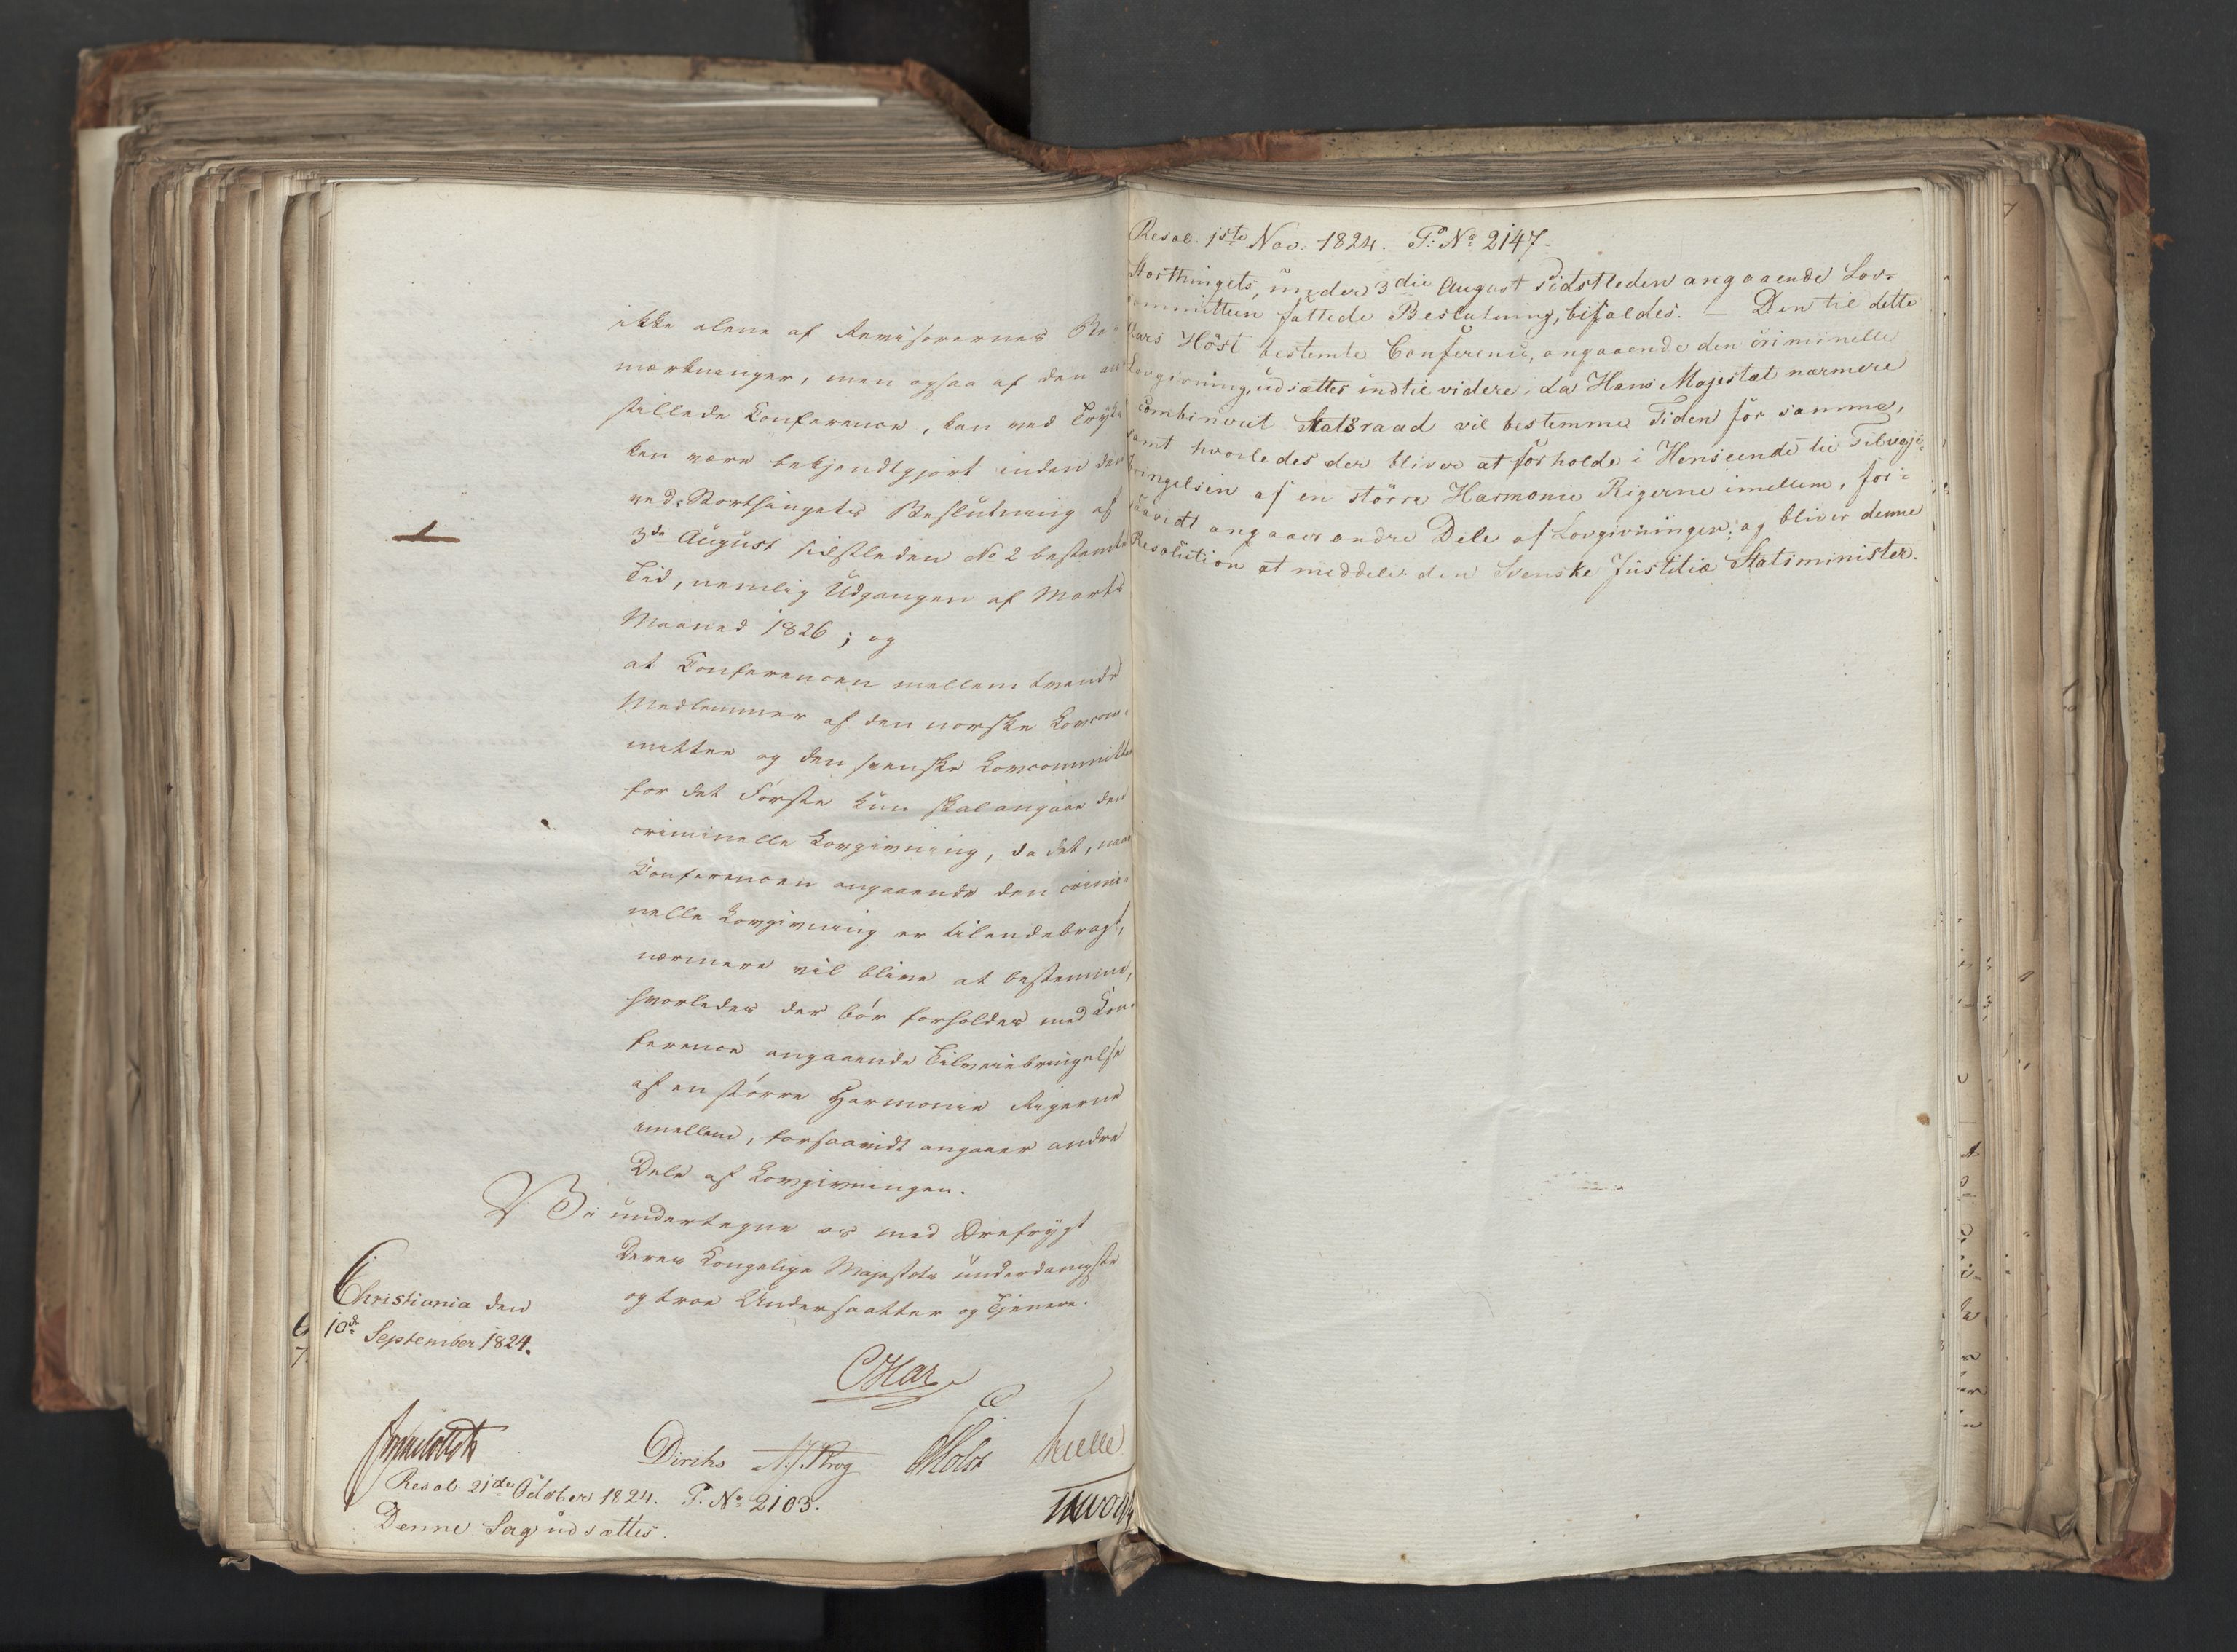 ikke alene af Revisorernes Be-
mærkninger, men ogsaa af den an-
stillede Conference, kan ved Tryk-
ken være bekjendtgjort inden den
ved Storthingets Beslutning af
3die August sidstleden No 2 bestemte
Tid, nemlig Udgangen af Marts
Maaned 1826; og
at Conferencen mellem tvende
Medlemmer af den norske Lovcom-
mittee og den svenske Lovcommittee
for det Første kun skal angaae den
criminelle Lovgivning, da det, naar
Conferencen angaaende den crimi-
nelle Lovgivning er tilendebragt,
nærmere vil blive at bestemme,
hvorledes der bør forholdes med Con-
ference angaaende Tilveiebringelse
af en større Harmonie Rigerne
imellem, forsaavidt angaaer andre
Dele af Lovgivningen.
Vi undertegne os med Ærefrygt
Deres Kongelige Majestæts underdanigste
og troe Undersaatter og Tjenere.
Christiania den
10de September 1824.
Diriks
Holst
Resol. 21de October 1824. P. No 2103.
Denne Sag udsættes.
6
7.
Resol. 1ste Nov. 1824. P: No 2147.
Storthingets, under 3die August sidstleden angaaende Lov-
committeen fattede Beslutning, bifaldes. — Den til dette
Aars Höst bestemte Conference, angaaende den criminelle
Lovgivning, udsættes indtil videre, da Hans Majestæt nærmere
i combineret Statsraad vil bestemme Tiden for samme,
samt hvorledes der bliver at forholde i Henseende til Tilveje-
bringelsen af en större Harmonie Rigerne imellem, for-
saavidt angaaer andre Dele af Lovgivningen; og bliver denne
Resolution at meddele den Svenske Justitiæ Statsminister.